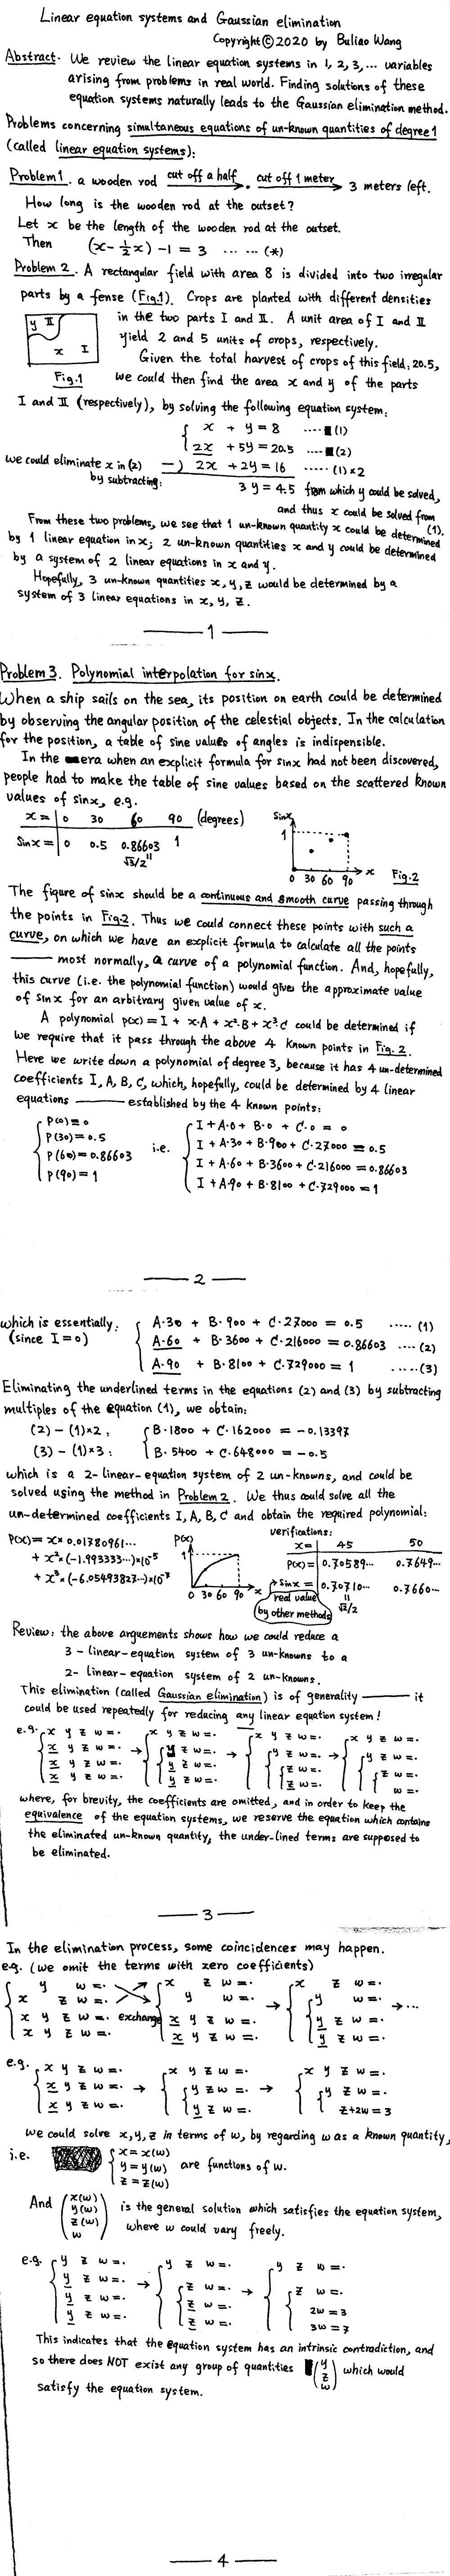 Linear equation systems and Gaussian elimination
Copyright©2020 by Buliao Wang
Abstract. We review the linear equation systems in 1, 2, 3, ... variables
arising from problems in real world. Finding solutions of these
equation systems naturally leads to the Gaussian elimination method.
Problems concerning simultaneous equations of un-known quantities of degree 1
(called linear equation systems):
Problem 1. a wooden rod cut off a half → cut off 1 meter → 3 meters left.
How long is the wooden rod at the outset?
Let x be the length of the wooden rod at the outset.
Then (x-½x)-1=3 ... ... (*)
Problem 2. A rectangular field with area 8 is divided into two irregular
parts by a fense (Fig.1). Crops are planted with different densities
in the two parts I and II. A unit area of I and II
yield 2 and 5 units of crops, respectively.
y II
x I
Given the total harvest of crops of this field: 20.5,
Fig.1 we could then find the area x and y of the parts
I and II (respectively), by solving the following equation system:
x + y = 8 ---- (1)
2x + 5y = 20.5 ---- (2)
we could eliminate x in (2) -) 2x + 2y = 16 ..... (1)×2
by subtracting: 3y = 4.5 from which y could be solved,
and thus x could be solved from (1).
From these two problems, we see that 1 un-known quantity x could be determined
by 1 linear equation in x; 2 un-known quantities x and y could be determined
by a system of 2 linear equations in x and y.
Hopefully, 3 un-known quantities x, y, z would be determined by a
system of 3 linear equations in x, y, z.
1
Problem 3. Polynomial interpolation for sinx.
When a ship sails on the sea, its position on earth could be determined
by observing the angular position of the celestial objects. In the calculation
for the position, a table of sine values of angles is indispensible.
In the era when an explicit formula for sinx had not been discovered,
people had to make the table of sine values based on the scattered known
values of sinx, e.g.
x = 0 30 60 90 (degrees)
Sinx = 0 0.5 0.86603 1
√3/2
Sinx
1
0 30 60 90 x Fig.2
The figure of sinx should be a continuous and smooth curve passing through
the points in Fig.2. Thus we could connect these points with such a
curve, on which we have an explicit formula to calculate all the points
—— most normally, a curve of a polynomial function. And, hopefully,
this curve (i.e. the polynomial function) would give the approximate value
of sinx for an arbitrary given value of x.
A polynomial p(x) = I + x·A + x²·B + x³·C could be determined if
we require that it pass through the above 4 known points in Fig. 2.
Here we write down a polynomial of degree 3, because it has 4 un-determined
coefficients I, A, B, C, which, hopefully, could be determined by 4 linear
equations —— established by the 4 known points:
P(0) = 0 I + A·0 + B·0 + C·0 = 0
P(30) = 0.5 i.e. I + A·30 + B·900 + C·27000 = 0.5
P(60) = 0.86603 I + A·60 + B·3600 + C·216000 = 0.86603
P(90) = 1 I + A·90 + B·8100 + C·729000 = 1
2
which is essentially: A·30 + B·900 + C·27000 = 0.5 ..... (1)
(since I=0) A·60 + B·3600 + C·216000 = 0.86603 .... (2)
A·90 + B·8100 + C·729000 = 1 ..... (3)
Eliminating the underlined terms in the equations (2) and (3) by subtracting
multiples of the equation (1), we obtain:
(2)-(1)×2: B·1800 + C·162000 = -0.13397
(3)-(1)×3: B·5400 + C·648000 = -0.5
which is a 2-linear-equation system of 2 un-knowns, and could be
solved using the method in Problem 2. We thus could solve all the
un-determined coefficients I, A, B, C and obtain the required polynomial:
P(x) = x×0.01380961...
+ x²×(-1.993333...)×10⁻⁵
+ x³×(-6.05493827...)×10⁻⁷
P(x)
1
0 30 60 90 x
verifications:
x= 45 50
P(x)= 0.70589... 0.7649...
sinx = 0.70710... 0.7660...
real value √2/2
by other methods
Review: the above arguements shows how we could reduce a
3-linear-equation system of 3 un-knowns to a
2-linear-equation system of 2 un-knowns.
This elimination (called Gaussian elimination) is of generality —— it
could be used repeatedly for reducing any linear equation system!
e.g. x y z w=· x y z w=· x y z w=· x y z w=·
x y z w=· → y z w=· → y z w=· → y z w=·
x y z w=· y z w=· z w=· z w=·
x y z w=· y z w=· z w=· w=·
where, for brevity, the coefficients are omitted, and in order to keep the
equivalence of the equation systems, we reserve the equation which contains
the eliminated un-known quantity, the under-lined terms are supposed to
be eliminated.
3
In the elimination process, some coincidences may happen.
e.g. (we omit the terms with zero coefficients)
y w=· x z w=· x z w=·
x z w=· y w=· y w=·
x y z w=· exchange x y z w=· → y z w=· → ...
x y z w=· x y z w=· y z w=·
e.g. x y z w=· x y z w=· x y z w=·
x y z w=· → y z w=· → y z w=·
x y z w=· y z w=· z+2w=3
we could solve x, y, z in terms of w, by regarding w as a known quantity,
i.e. x = x(w)
y = y(w) are functions of w.
z = z(w)
And (x(w) y(w) z(w) w) is the general solution which satisfies the equation system,
where w could vary freely.
e.g. y z w=· y z w=· y z w=·
y z w=· → z w=· → z w=·
y z w=· z w=· 2w=3
y z w=· z w=· 3w=7
This indicates that the equation system has an intrinsic contradiction, and
so there does NOT exist any group of quantities (y z w) which would
satisfy the equation system.
4